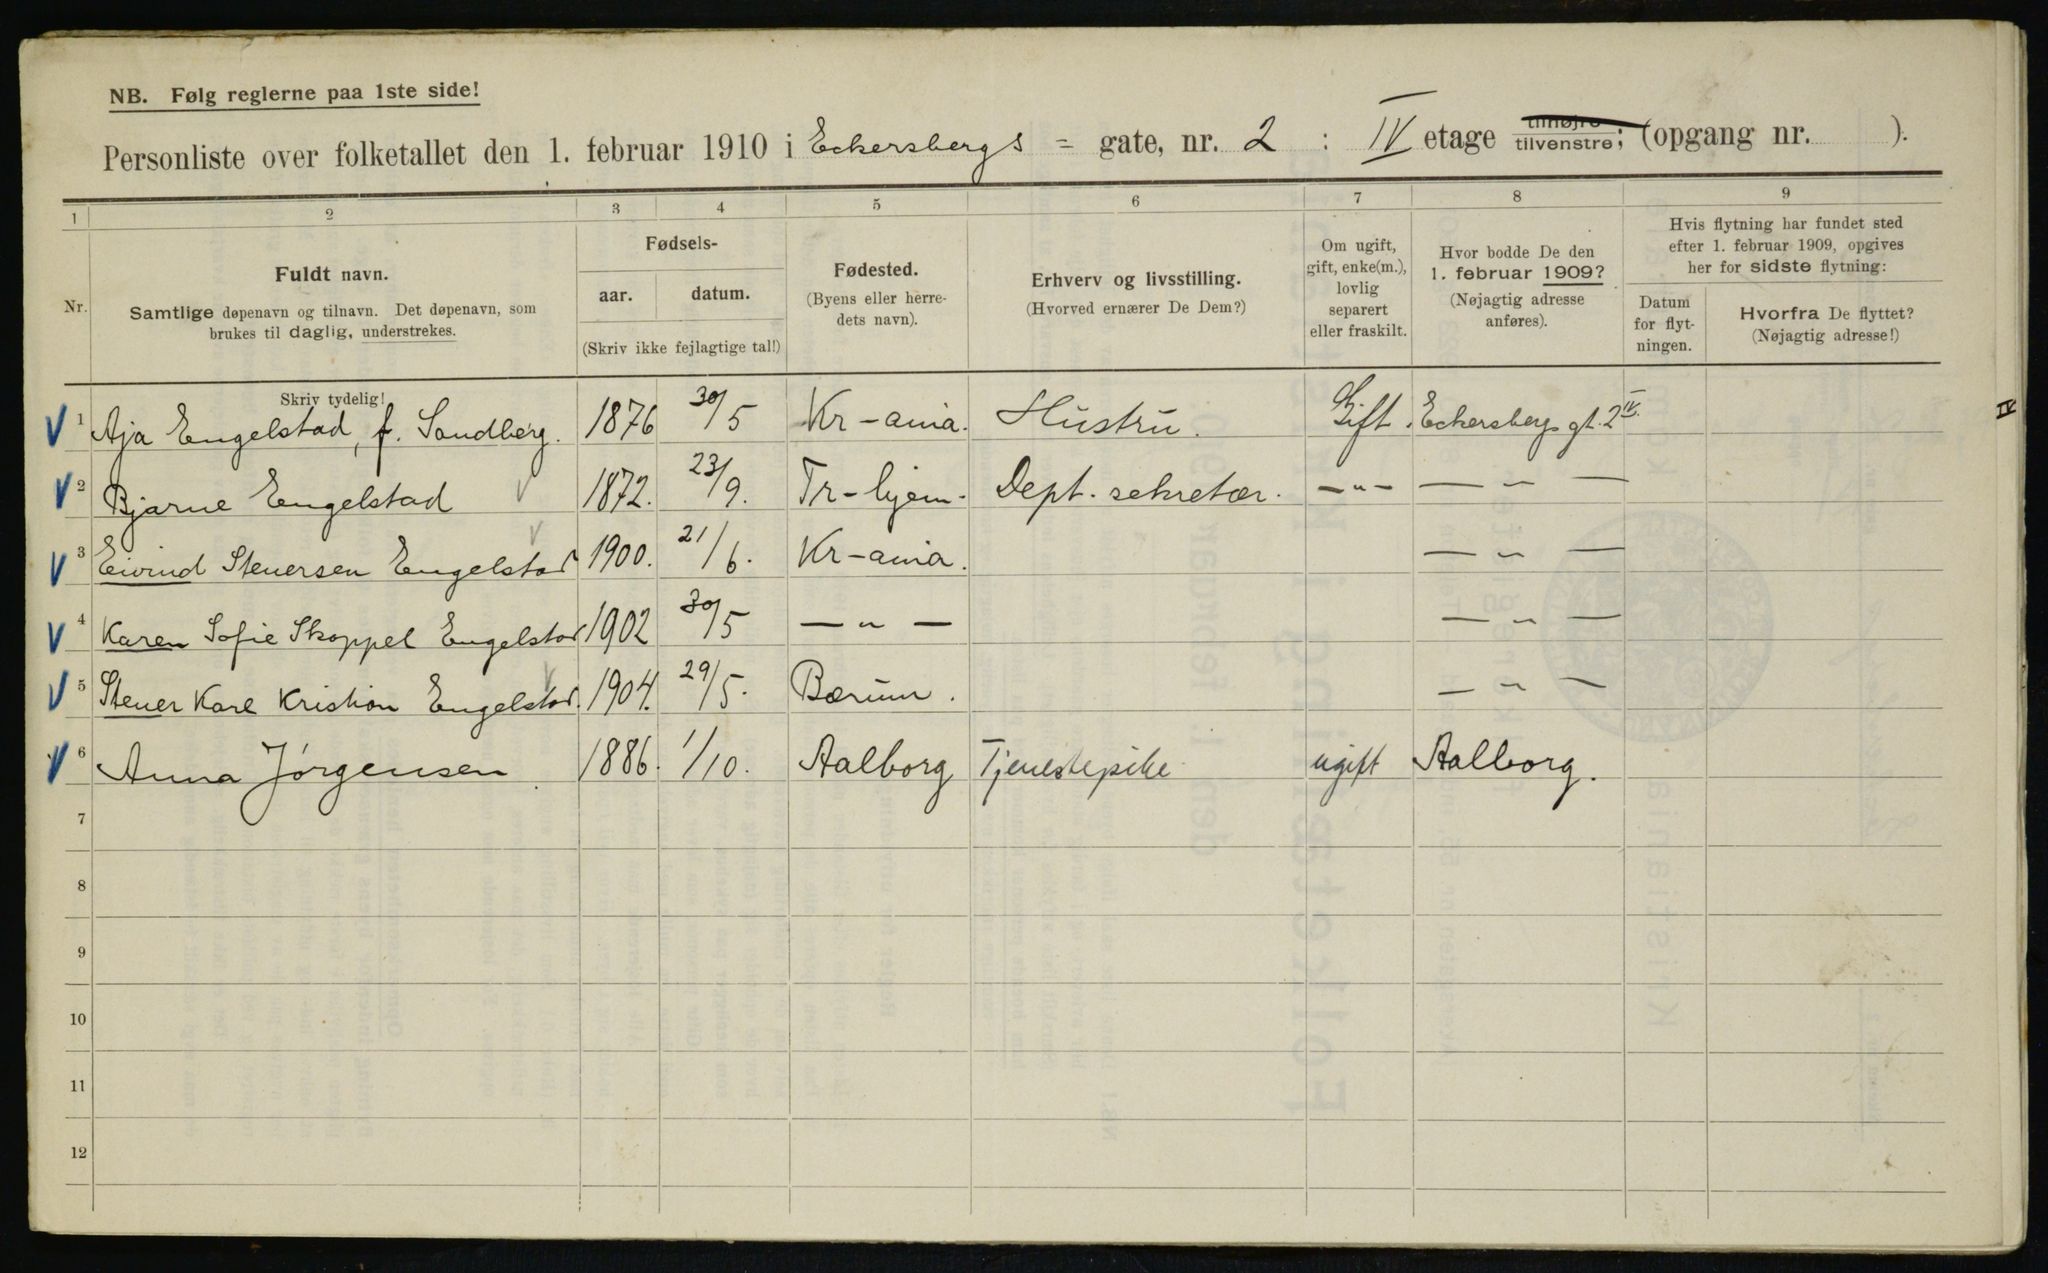 NB. Følg reglerne paa 1ste side!
Personliste over folketallet den 1. februar 1910 i Eckersbergs = gate, nr. 2 : IV etage tilhøjre tilvenstre; (opgang nr. ).
1 2 3 4 5 6 7 8 9
Nr.
Fuldt navn.
Samtlige døpenavn og tilnavn. Det døpenavn, som
brukes til daglig, understrekes.
Skriv tydelig!
Fødsels-
aar. datum.
(Skriv ikke fejlagtige tal!)
Fødested.
(Byens eller herre-
dets navn).
Erhverv og livsstilling.
(Hvorved ernærer De Dem?)
Om ugift,
gift, enke(m.),
lovlig
separert
eller fraskilt.
Hvor bodde De den
1. februar 1909?
(Nøjagtig adresse
anføres).
Hvis flytning har fundet sted
efter 1. februar 1909, opgives
her for sidste flytning:
Datum
for flyt-
ningen.
Hvorfra De flyttet?
(Nøjagtig adresse!)
V 1 Aja Engelstad, f. Sandberg. 1876 30/5 Kr-ania. Hustru. Gift. Eckersbergs gt. 2 IV.
IV
V 2 Bjarne Engelstad 1872. 23/9. Tr-hjem. Dept. sekretær. — " — — " —
V 3 Eivind Steuersen Engelstad 1900. 21/6. Kr-ania. — " —
V 4 Karen Sofie Skappel Engelstad 1902 30/5 — " — — " —
V 5 Stener Kare Kristian Engelstad. 1904. 29/5. Bærum. — " —
V 6 Anna Jørgensen. 1886. 1/10. Aalborg Tjenestepike ugift Aalborg.
7
8
9
10
11
12